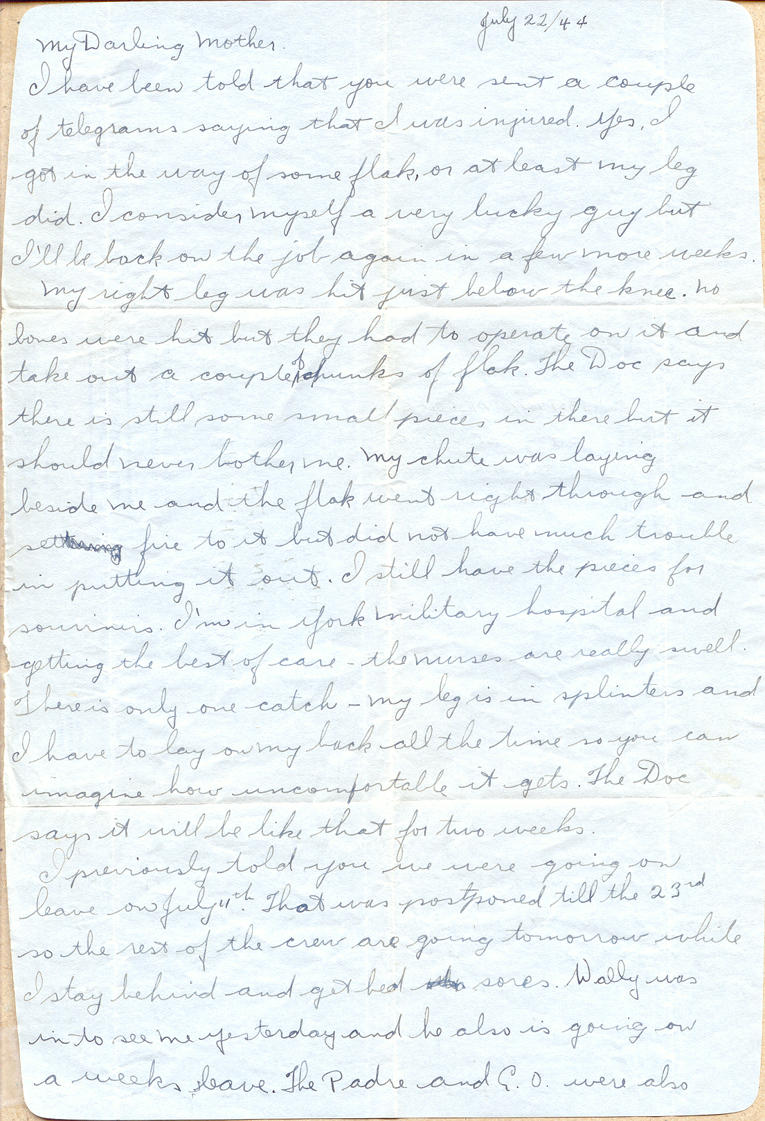 July 22/44
My Darling Mother.
I have been told that you were sent a couple
of telegrams saying that I was injured. Yes, I
got in the way of some flak, or at least my leg
did. I consider myself a very lucky guy but
I'll be back on the job again in a few more weeks.
My right leg was hit just below the knee. No
bones were hit but they had to operate on it and
take out a couple of chunks of flak. The Doc says
there is still some small pieces in there but it
should never bother me. My chute was laying
beside me and the flak went right through and
set fire to it but did not have much trouble
in putting it out. I still have the pieces for
souvinirs. I'm in York Military hospital and
getting the best of care - the nurses are really swell.
There is only one catch - my leg is in splinters and
I have to lay on my back all the time so you can
imagine how uncomfortable it gets. The Doc
says it will be like that for two weeks.
I previously told you we were going on
leave on July 11th. That was postponed till the 23rd
so the rest of the crew are going tomorrow while
I stay behind and get bed sores. Wally was
in to see me yesterday and he also is going on
a weeks leave. The Padre and C. O. were also